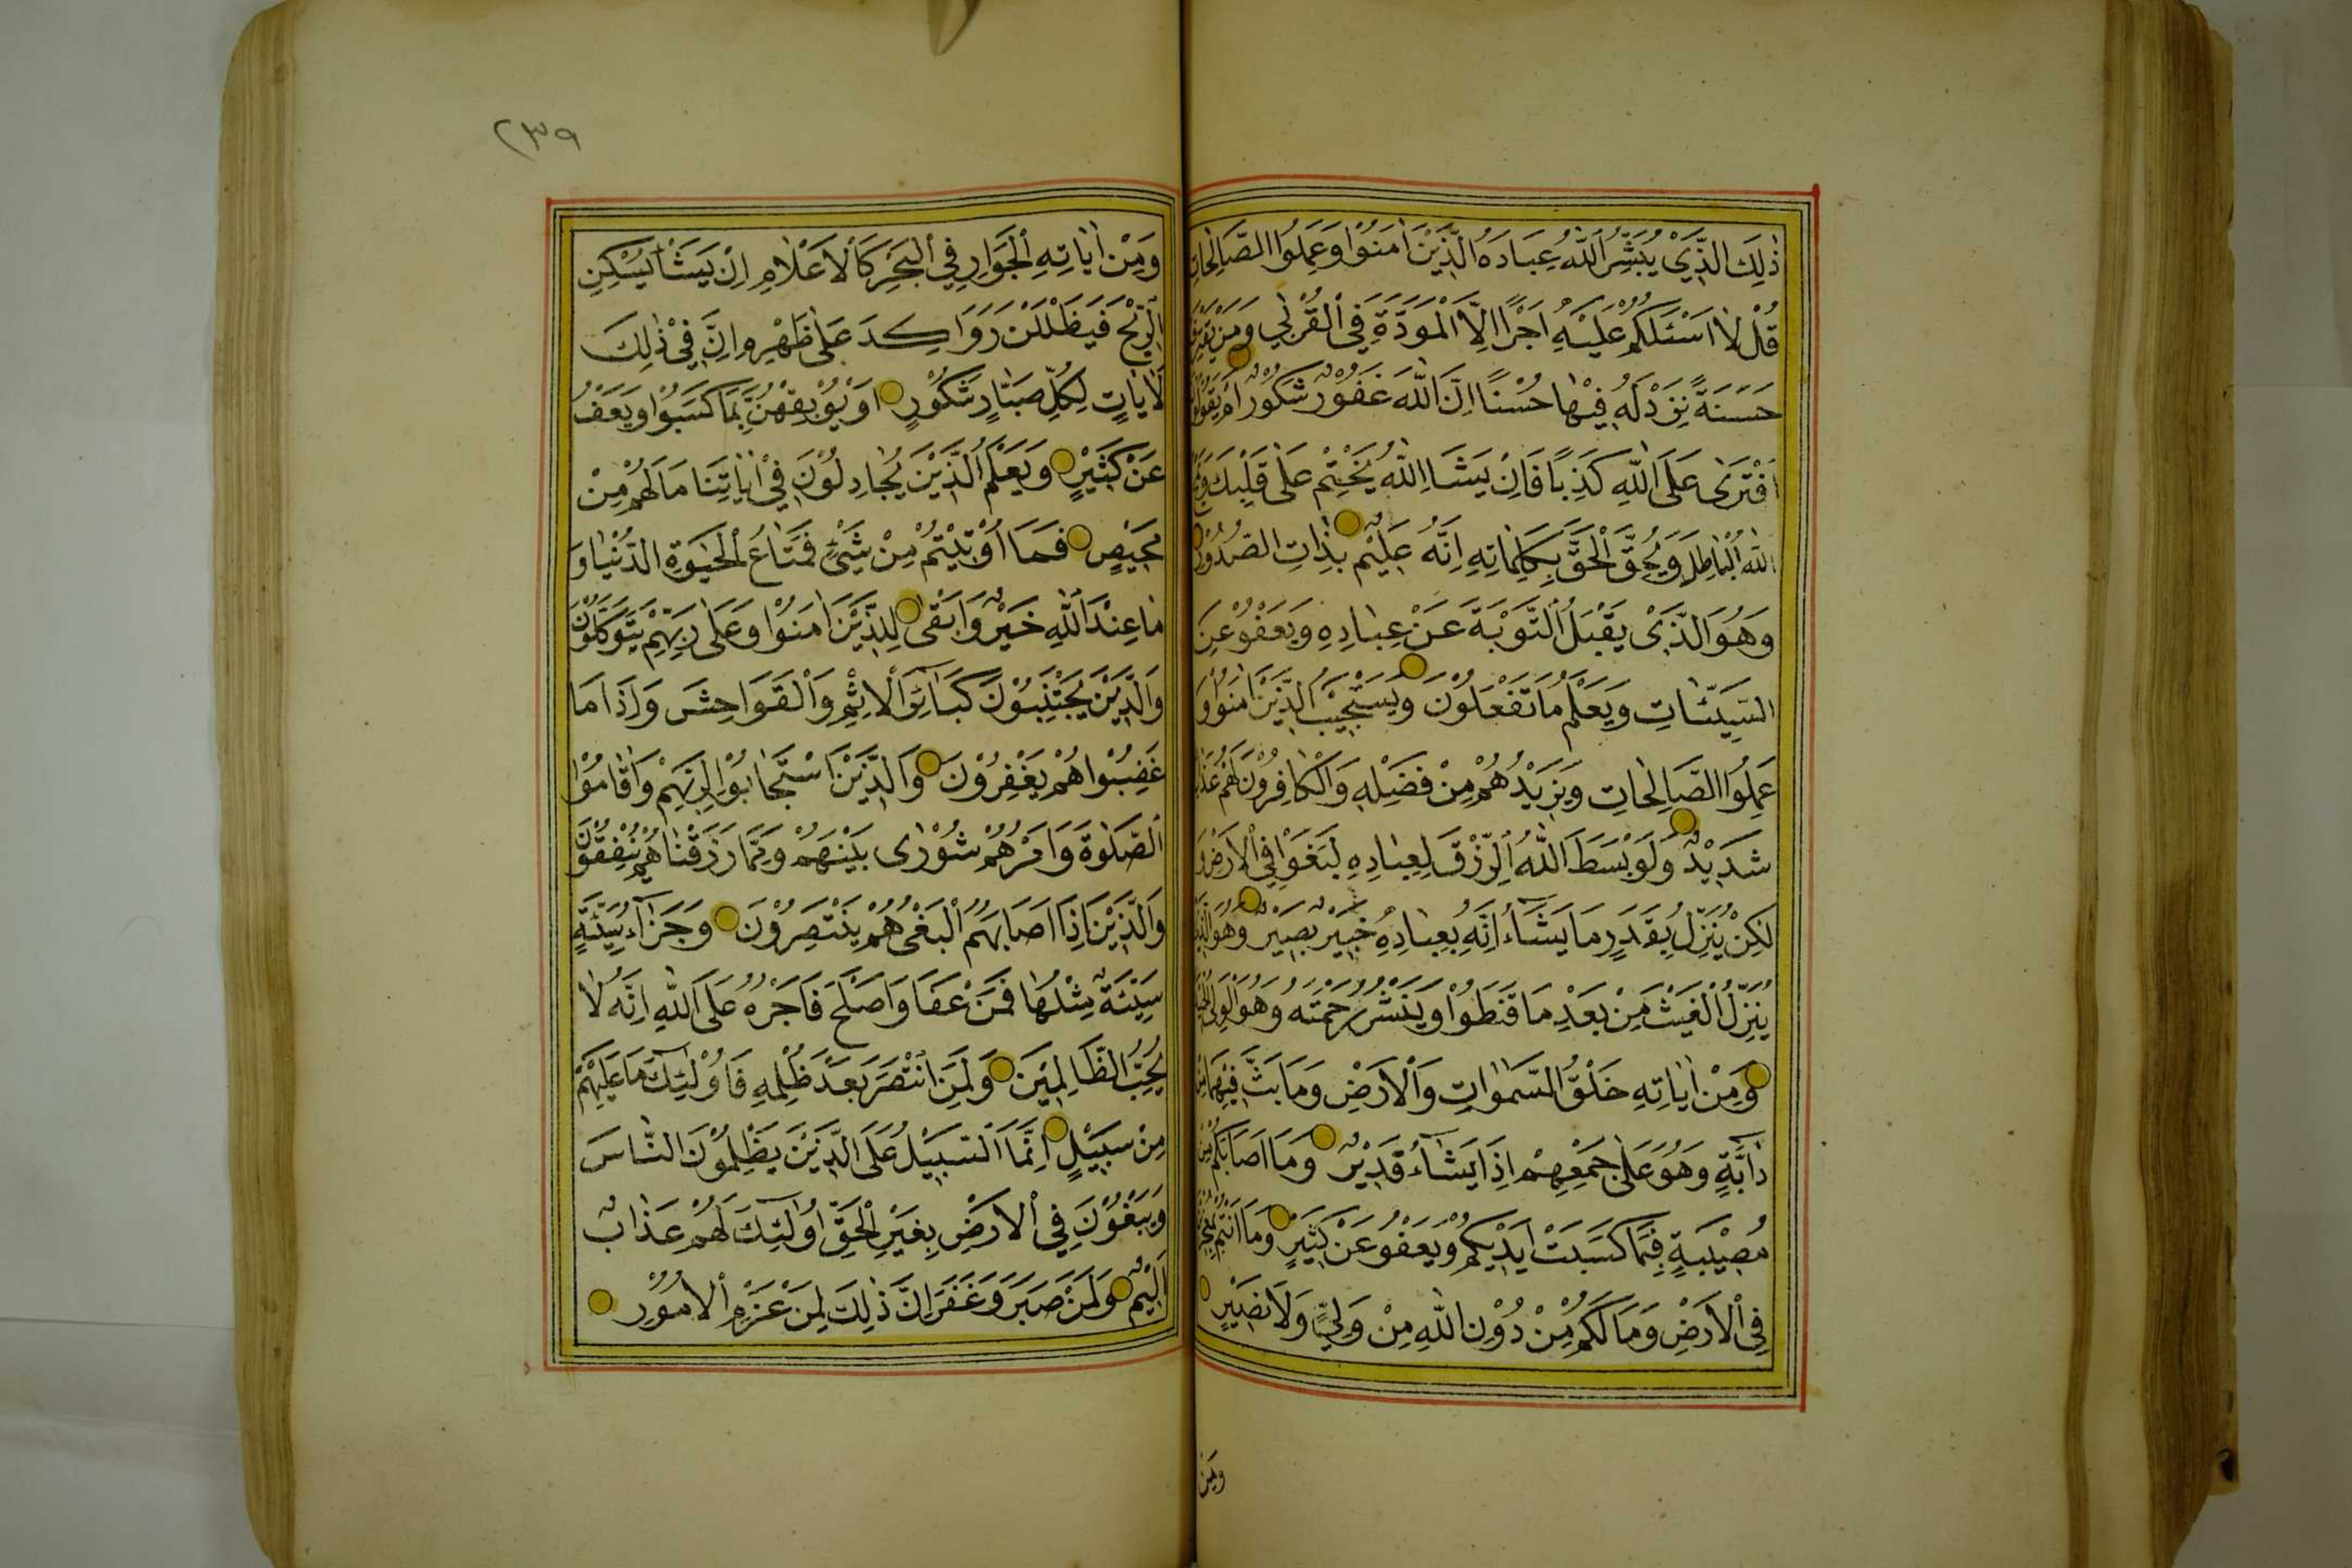 ذٰلِكَ الَّذِيْ يُبَشِّرُ اللّٰهُ عِبَادَهُ الَّذِيْنَ اٰمَنُوْا وَعَمِلُوا الصَّالِحَاتِ
قُلْ لَا اَسْئَلُكُمْ عَلَيْهِ اَجْرًا اِلَّا الْمَوَدَّةَ فِي الْقُرْبٰى وَمَنْ يَقْتَرِفْ
حَسَنَةً نَزِدْ لَهُ فِيْهَا حُسْنًا اِنَّ اللّٰهَ غَفُوْرٌ شَكُوْرٌ اَمْ يَقُوْلُوْنَ
افْتَرٰى عَلَى اللّٰهِ كَذِبًا فَاِنْ يَشَاِ اللّٰهُ يَخْتِمْ عَلٰى قَلْبِكَ وَيَمْحُ
اللّٰهُ الْبَاطِلَ وَيُحِقُّ الْحَقَّ بِكَلِمَاتِهِ اِنَّهُ عَلِيْمٌ بِذَاتِ الصُّدُوْرِ
وَهُوَ الَّذِيْ يَقْبَلُ التَّوْبَةَ عَنْ عِبَادِهِ وَيَعْفُوْ عَنِ
السَّيِّئَاتِ وَيَعْلَمُ مَا تَفْعَلُوْنَ وَيَسْتَجِيْبُ الَّذِيْنَ اٰمَنُوْا وَ
عَمِلُوا الصَّالِحَاتِ وَيَزِيْدُهُمْ مِنْ فَضْلِهِ وَالْكَافِرُوْنَ لَهُمْ عَذَابٌ
شَدِيْدٌ وَلَوْ بَسَطَ اللّٰهُ الرِّزْقَ لِعِبَادِهِ لَبَغَوْا فِي الْاَرْضِ وَ
لٰكِنْ يُنَزِّلُ بِقَدَرٍ مَا يَشَآءُ اِنَّهُ بِعِبَادِهِ خَبِيْرٌ بَصِيْرٌ وَهُوَ الَّذِيْ
يُنَزِّلُ الْغَيْثَ مِنْ بَعْدِ مَا قَنَطُوْا وَيَنْشُرُ رَحْمَتَهُ وَهُوَ الْوَلِيُّ الْحَمِيْدُ
وَمِنْ اٰيَاتِهِ خَلْقُ السَّمٰوَاتِ وَالْاَرْضِ وَمَا بَثَّ فِيْهِمَا مِنْ
دَابَّةٍ وَهُوَ عَلٰى جَمْعِهِمْ اِذَا يَشَآءُ قَدِيْرٌ وَمَا اَصَابَكُمْ مِنْ
مُصِيْبَةٍ فَبِمَا كَسَبَتْ اَيْدِيْكُمْ وَيَعْفُوْ عَنْ كَثِيْرٍ وَمَا اَنْتُمْ بِمُعْجِزِيْنَ
فِي الْاَرْضِ وَمَا لَكُمْ مِنْ دُوْنِ اللّٰهِ مِنْ وَلِيٍّ وَلَا نَصِيْرٍ
وَمِنْ
٢٣٩
وَمِنْ اٰيَاتِهِ الْجَوَارِ فِي الْبَحْرِ كَالْاَعْلَامِ اِنْ يَشَأْ يُسْكِنِ
الرِّيْحَ فَيَظْلَلْنَ رَوَاكِدَ عَلٰى ظَهْرِهِ اِنَّ فِيْ ذٰلِكَ
لَاٰيَاتٍ لِكُلِّ صَبَّارٍ شَكُوْرٍ اَوْ يُوْبِقْهُنَّ بِمَا كَسَبُوْا وَيَعْفُ
عَنْ كَثِيْرٍ وَيَعْلَمَ الَّذِيْنَ يُجَادِلُوْنَ فِيْ اٰيَاتِنَا مَا لَهُمْ مِنْ
مَحِيْصٍ فَمَا اُوْتِيْتُمْ مِنْ شَيْءٍ فَمَتَاعُ الْحَيٰوةِ الدُّنْيَا وَ
مَا عِنْدَ اللّٰهِ خَيْرٌ وَاَبْقٰى لِلَّذِيْنَ اٰمَنُوْا وَعَلٰى رَبِّهِمْ يَتَوَكَّلُوْنَ
وَالَّذِيْنَ يَجْتَنِبُوْنَ كَبَآئِرَ الْاِثْمِ وَالْفَوَاحِشَ وَاِذَا مَا
غَضِبُوْا هُمْ يَغْفِرُوْنَ وَالَّذِيْنَ اسْتَجَابُوْا لِرَبِّهِمْ وَاَقَامُوْا
الصَّلٰوةَ وَاَمْرُهُمْ شُوْرٰى بَيْنَهُمْ وَمِمَّا رَزَقْنَاهُمْ يُنْفِقُوْنَ
وَالَّذِيْنَ اِذَا اَصَابَهُمُ الْبَغْيُ هُمْ يَنْتَصِرُوْنَ وَجَزَآءُ سَيِّئَةٍ
سَيِّئَةٌ مِثْلُهَا فَمَنْ عَفَا وَاَصْلَحَ فَاَجْرُهُ عَلَى اللّٰهِ اِنَّهُ لَا
يُحِبُّ الظَّالِمِيْنَ وَلَمَنِ انْتَصَرَ بَعْدَ ظُلْمِهِ فَاُولٰٓئِكَ مَا عَلَيْهِمْ
مِنْ سَبِيْلٍ اِنَّمَا السَّبِيْلُ عَلَى الَّذِيْنَ يَظْلِمُوْنَ النَّاسَ
وَيَبْغُوْنَ فِي الْاَرْضِ بِغَيْرِ الْحَقِّ اُولٰٓئِكَ لَهُمْ عَذَابٌ
اَلِيْمٌ وَلَمَنْ صَبَرَ وَغَفَرَ اِنَّ ذٰلِكَ لِمَنْ عَزْمِ الْاُمُوْرِ